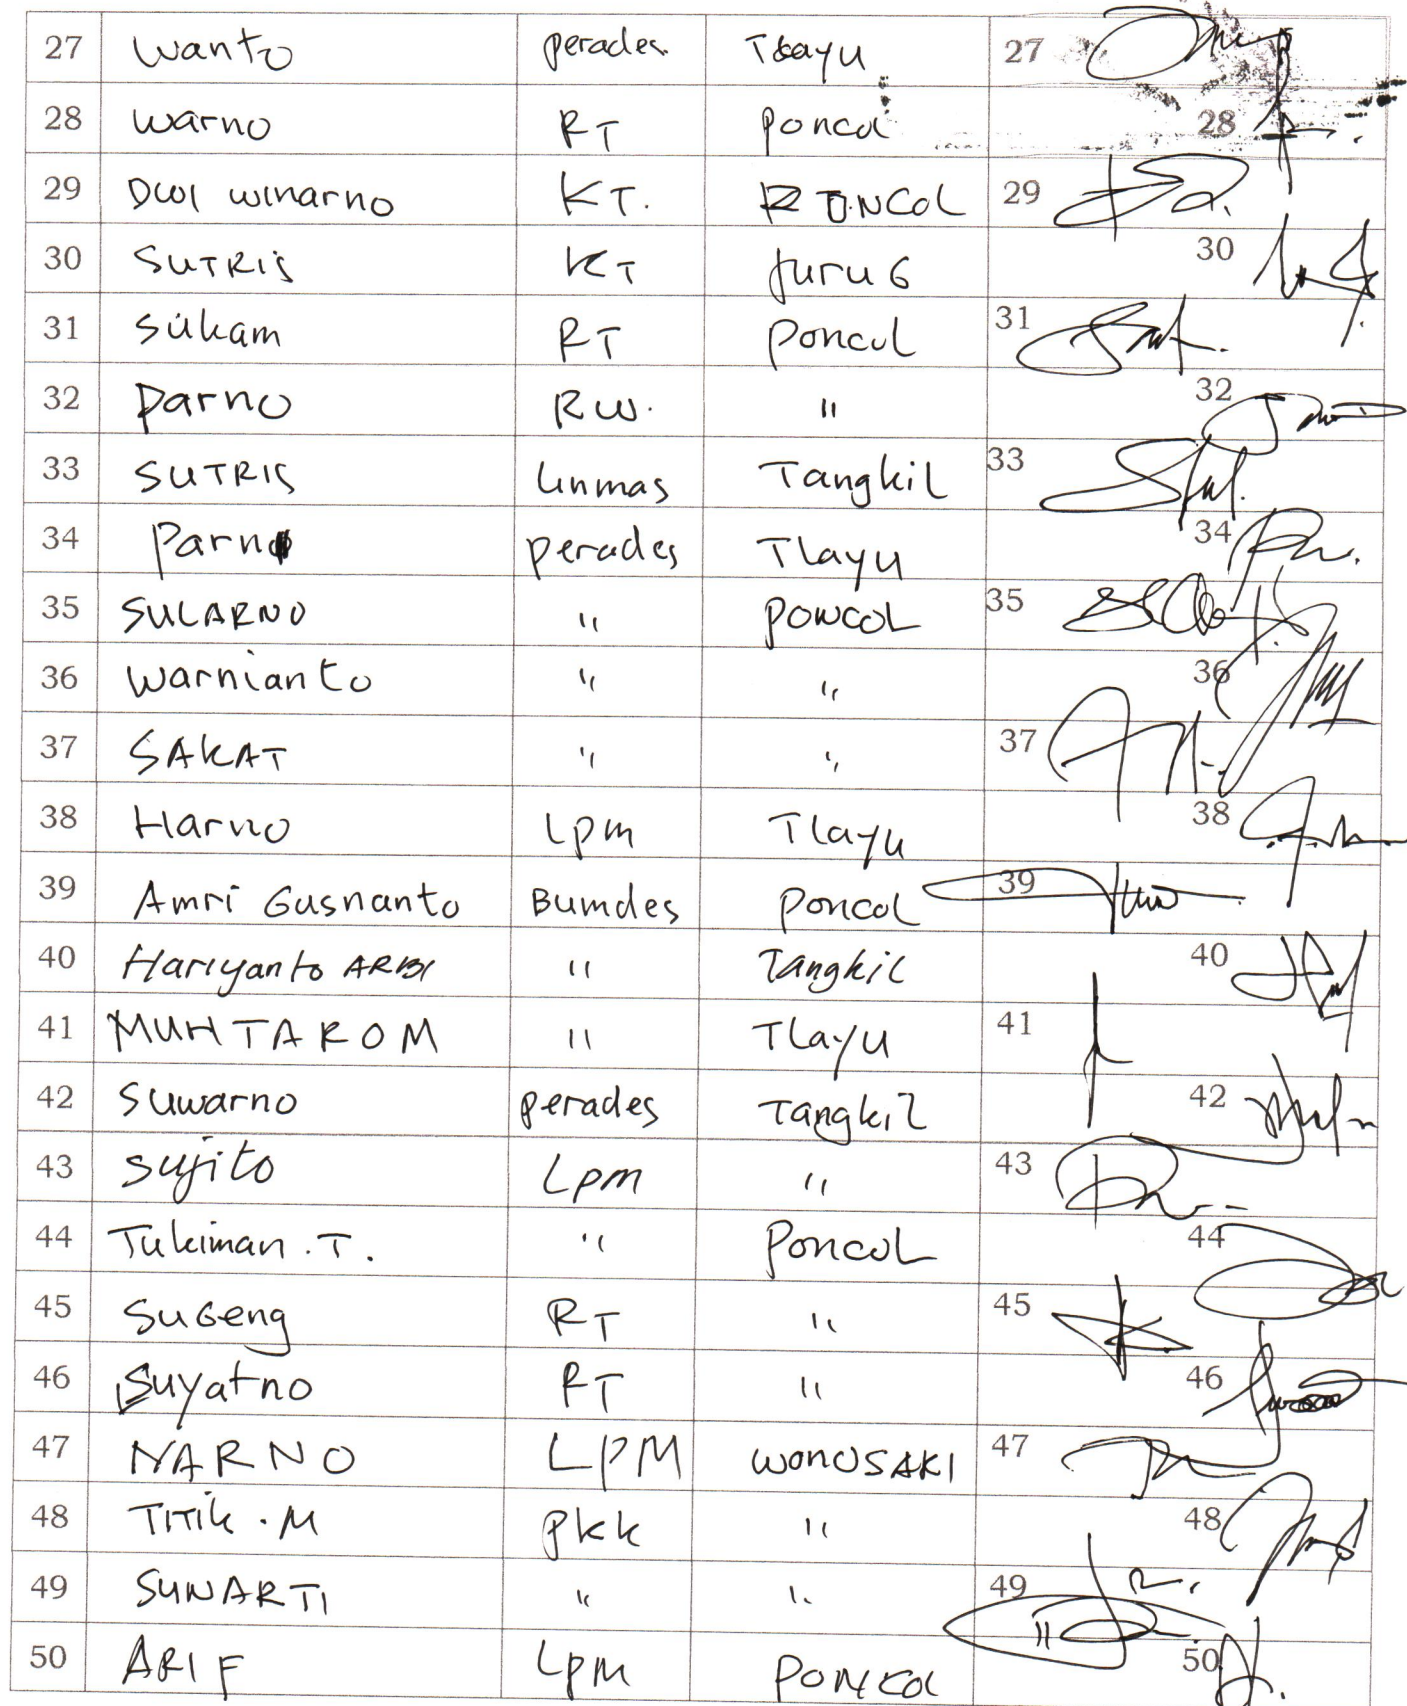 27 Wanto perades Tlayu 27
28 Warno RT poncol 28
29 DWI WINARNO KT. PONCOL 29
30 SUTRIS KT Jurug 30
31 Sukam RT Poncol 31
32 Parno RW. " 32
33 SUTRIS Linmas Tangkil 33
34 Parno perades Tlayu 34
35 SULARNO " PONCOL 35
36 Warnianto " " 36
37 SAKAT " " 37
38 Harno Lpm Tlayu 38
39 Amri Gusnanto Bumdes Poncol 39
40 Hariyanto ARBI " Tangkil 40
41 MUHTAROM " Tlayu 41
42 Suwarno perades Tangkil 42
43 Sujito Lpm " 43
44 Tukiman . T. " PoncoL 44
45 SuGeng RT " 45
46 Suyatno RT " 46
47 NARNO LPM WONOSARI 47
48 TITIK . M pkk " 48
49 SUNARTI " " 49
50 ARIF Lpm PONCOL 50